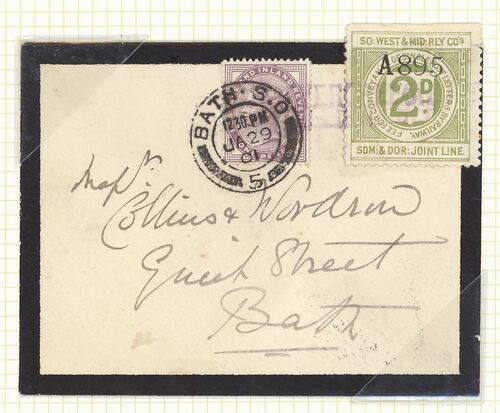 SO: WEST & MID: RLY COYS
A895
FEE FOR CONVEYANCE OF SINGLE POST LETTERS BY RAILWAY
2D
SOM: & DOR: JOINT LINE
AND INLAND REVENUE
BATH. S.O
12.30.PM
29
01
5
Messrs
Collins & Woodrow
Quiet Street
Bath